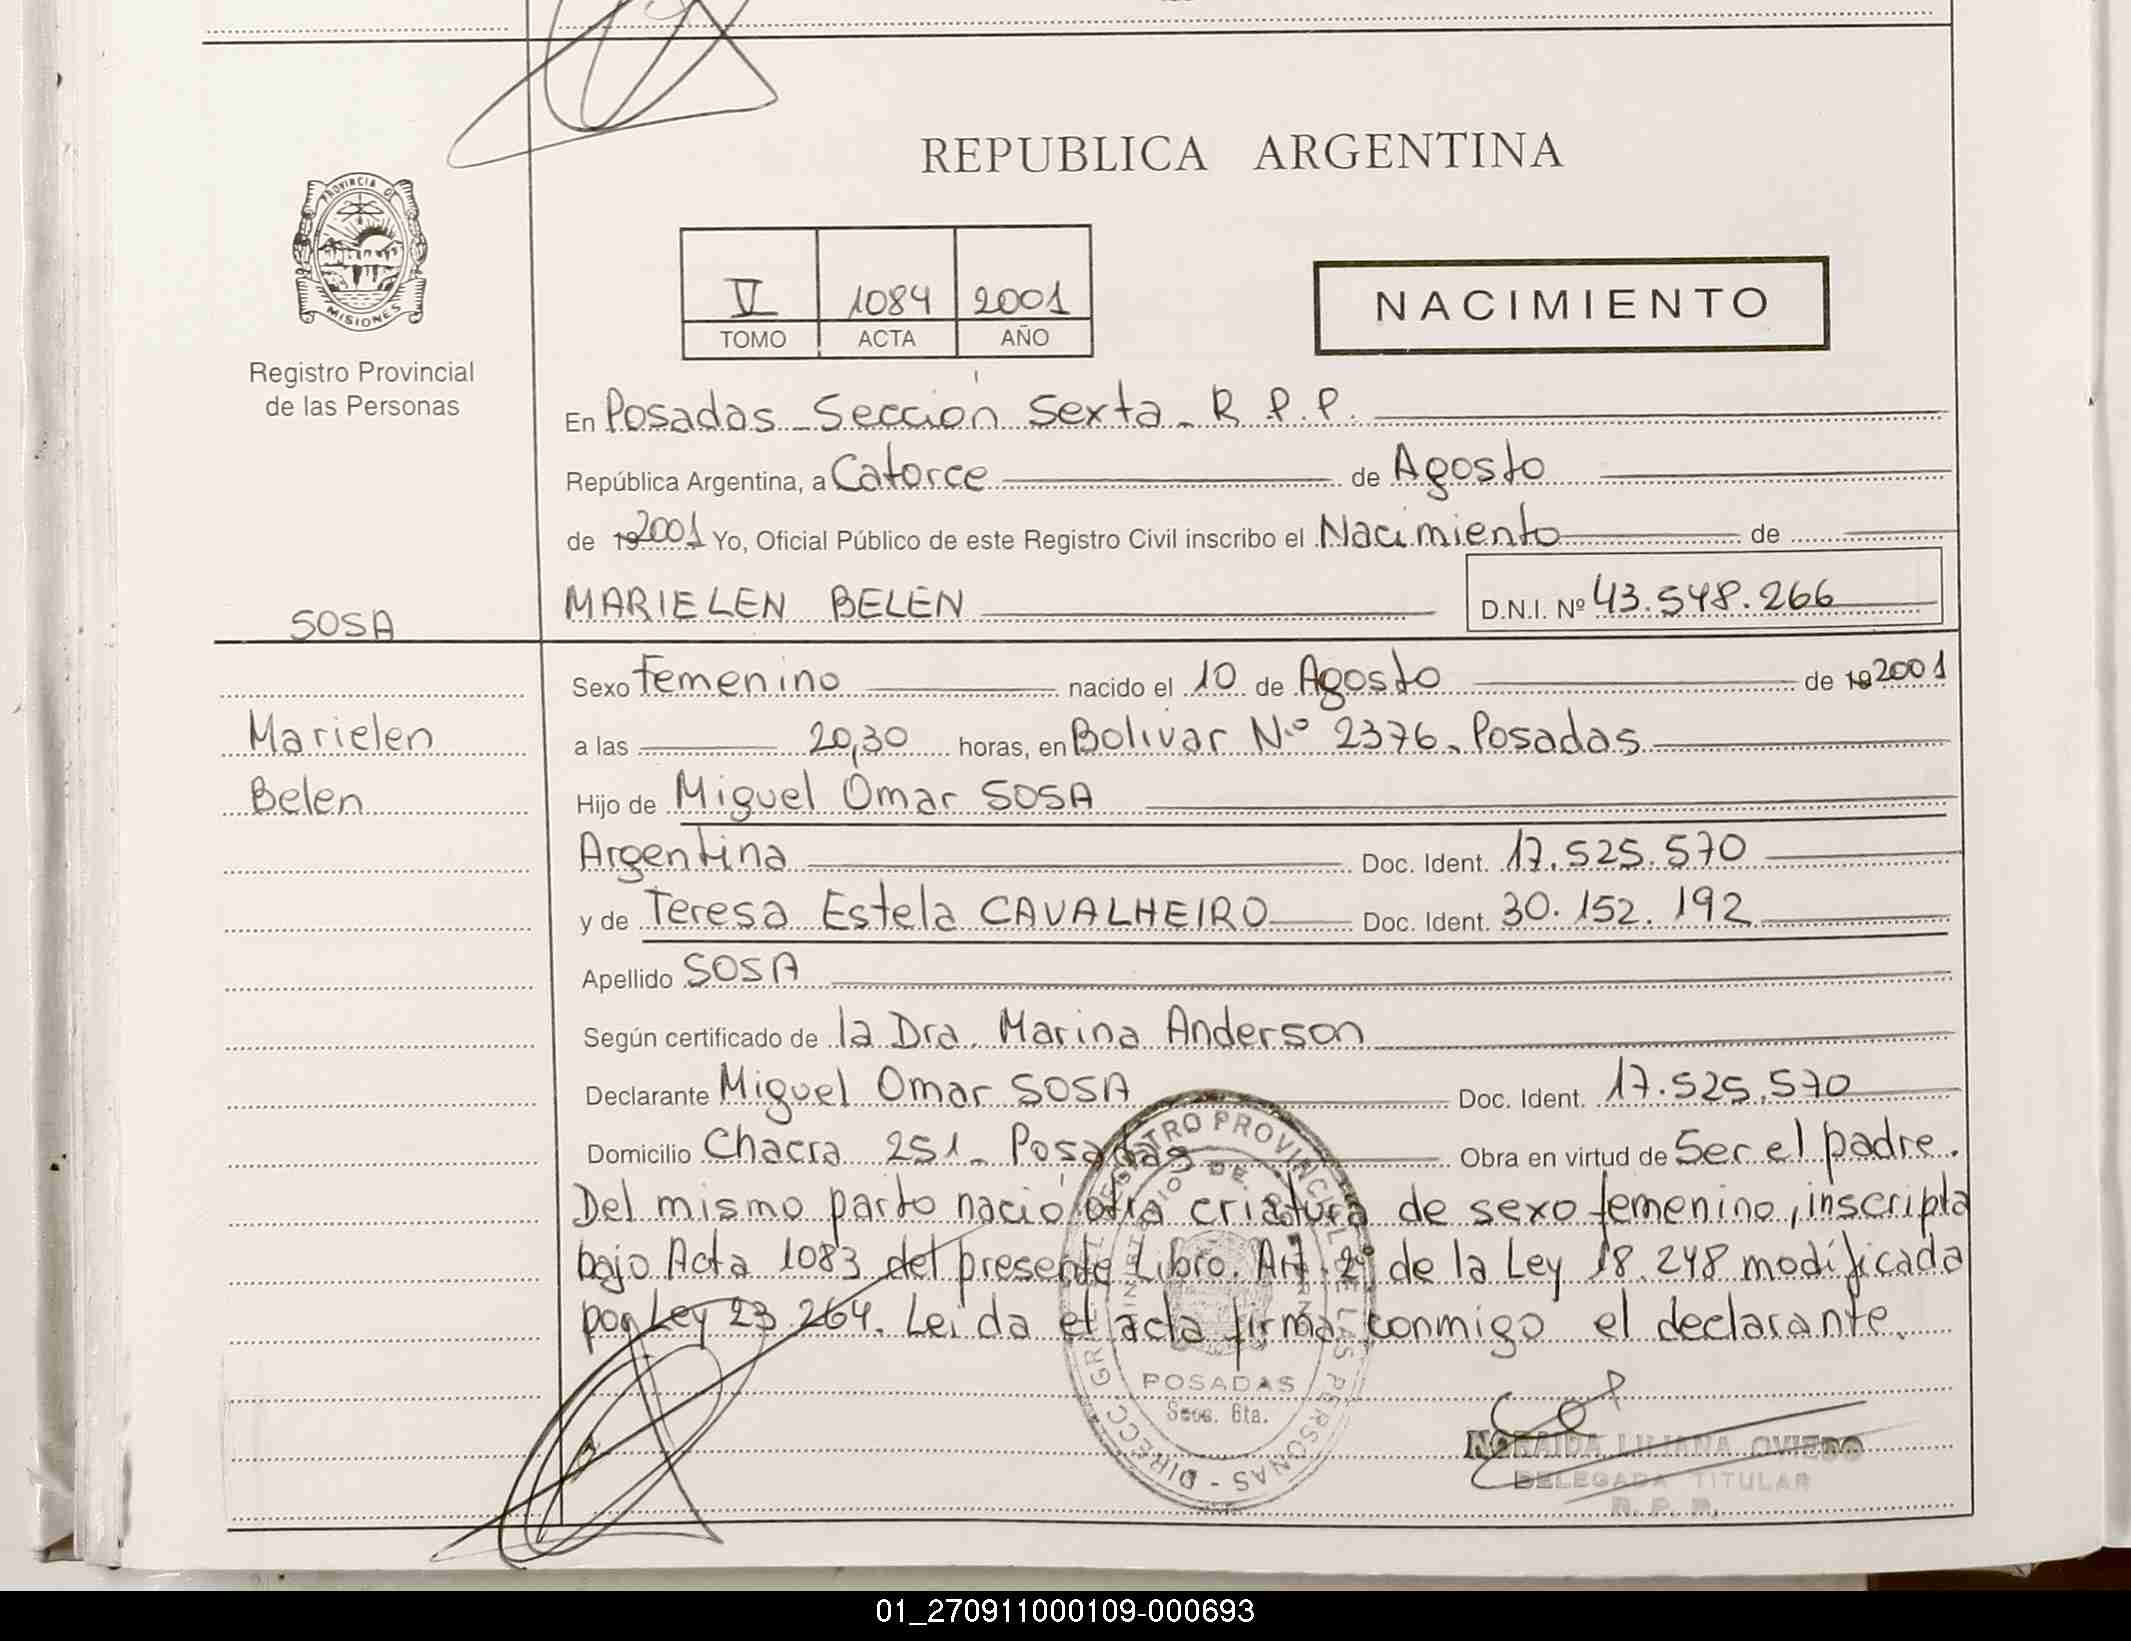 REPUBLICA ARGENTINA
PROVINCIA DE
MISIONES
Registro Provincial
de las Personas
V 1084 2001
TOMO ACTA AÑO
NACIMIENTO
En Posadas - Sección Sexta - R.P.P.
República Argentina, a Catorce de Agosto
de 19 2001 Yo, Oficial Público de este Registro Civil inscribo el Nacimiento de
SOSA
MARIELEN BELEN D.N.I. Nº 43.548.266
Sexo Femenino nacido el 10 de Agosto de 19 2001
Marielen
a las 20,30 horas, en Bolívar N.º 2376 - Posadas
Belen
Hijo de Miguel Omar SOSA
Argentina Doc. Ident. 17.525.570
y de Teresa Estela CAVALHEIRO Doc. Ident. 30.152.192
Apellido SOSA
Según certificado de la Dra. Marina Anderson
Declarante Miguel Omar SOSA Doc. Ident. 17.525.570
Domicilio Chacra 251 - Posadas Obra en virtud de Ser el padre.
Del mismo parto nació otra criatura de sexo femenino, inscripta
bajo Acta 1083 del presente Libro. Art. 2º de la Ley 18.248 modificada
por Ley 23.264. Leida el acta firma conmigo el declarante.
DIRECC. GRAL. REGISTRO PROVINCIAL DE LAS PERSONAS
POSADAS
Secc. 6ta.
NORAIDA LILIANA OVIEDO
DELEGADA TITULAR
R. P. P.
01_270911000109-000693